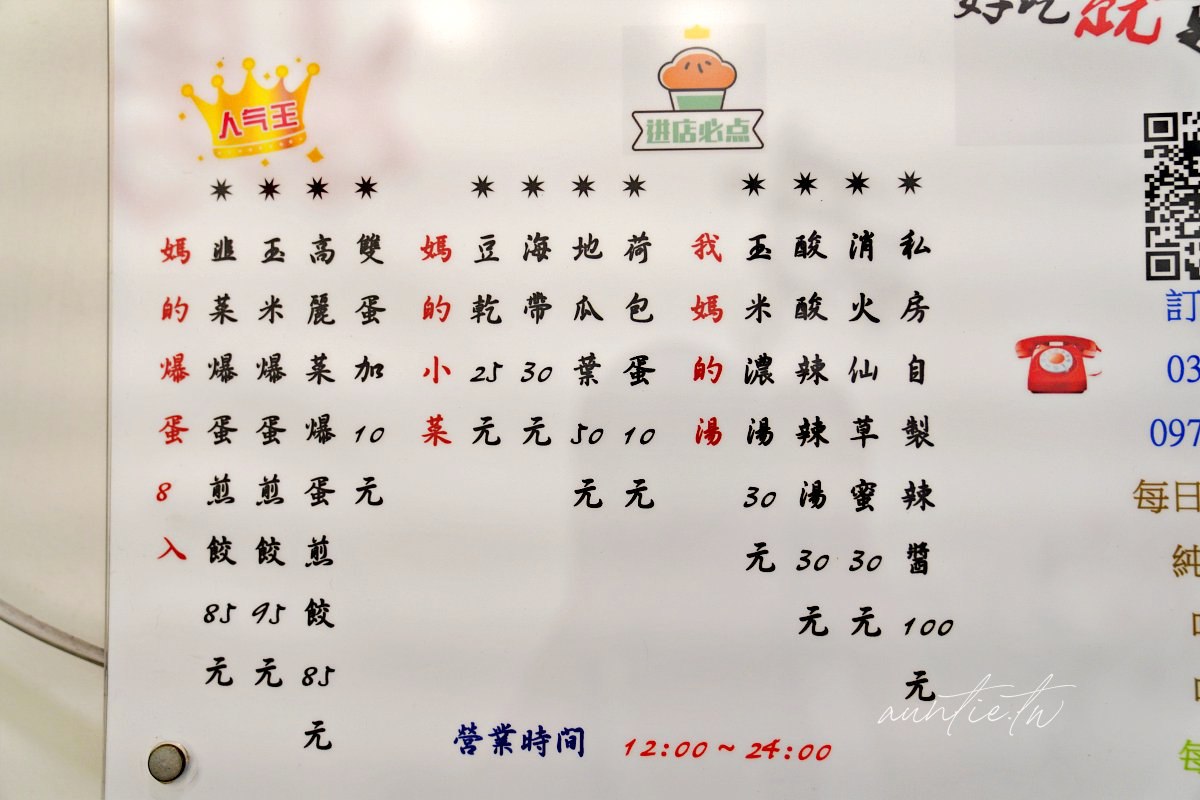 好吃就
人气王
进店必点
媽的爆蛋8入
韭菜爆蛋煎餃85元
玉米爆蛋煎餃95元
高麗菜爆蛋煎餃85元
雙蛋加10元
媽的小菜
豆乾25元
海帶30元
地瓜葉50元
荷包蛋10元
我媽的湯
玉米濃湯30元
酸酸辣辣湯30元
消火仙草蜜30元
私房自製辣醬100元
訂
03
097
每日
純
每
營業時間 12:00~24:00
auntie.tw